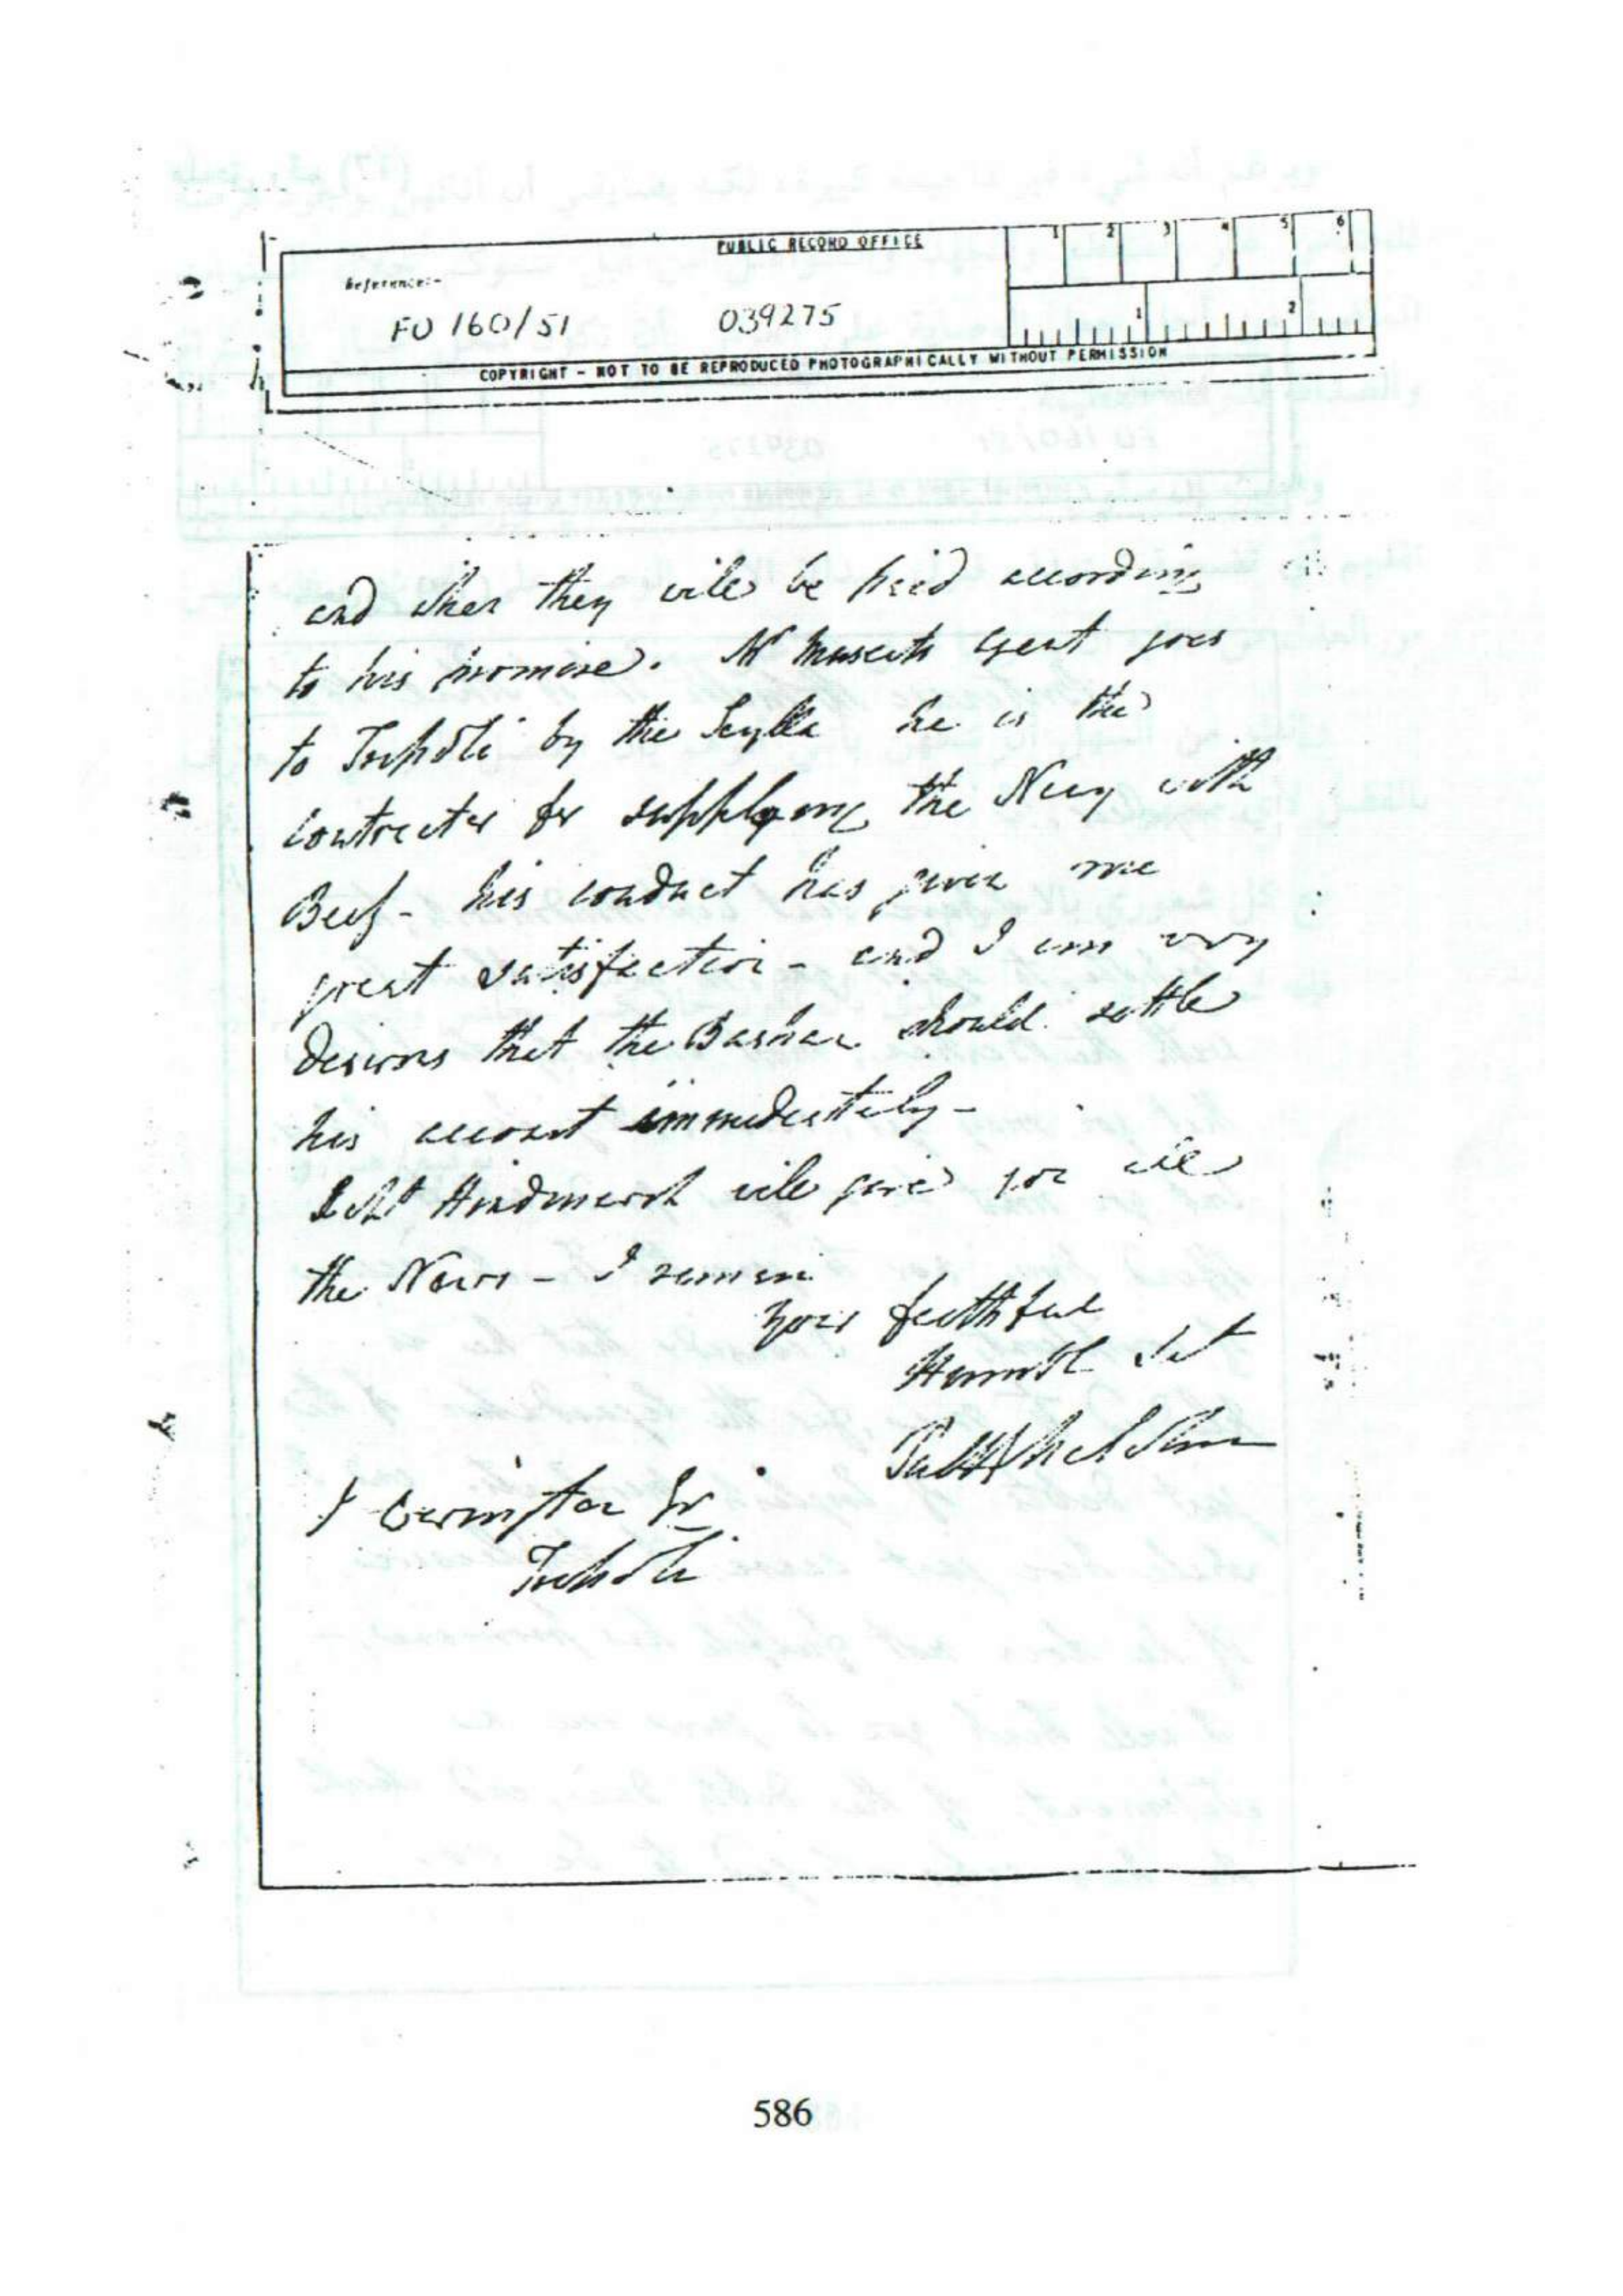 PUBLIC RECORD OFFICE
1 2 3 4 5 6
Reference:-
FO 160/51 039275
1 2
COPYRIGHT - NOT TO BE REPRODUCED PHOTOGRAPHICALLY WITHOUT PERMISSION
and when they will be paid according
to his promise. Mr agent goes
to Tripoli by the Scylla he is the
contractor for supplying the Navy with
Beef - his conduct has given me
great satisfaction - and I am very
desirous that the Bashaw should settle
his account immediately -
Hindmarsh will give you all
the News - I remain
your faithful
Humble
Tripoli
586